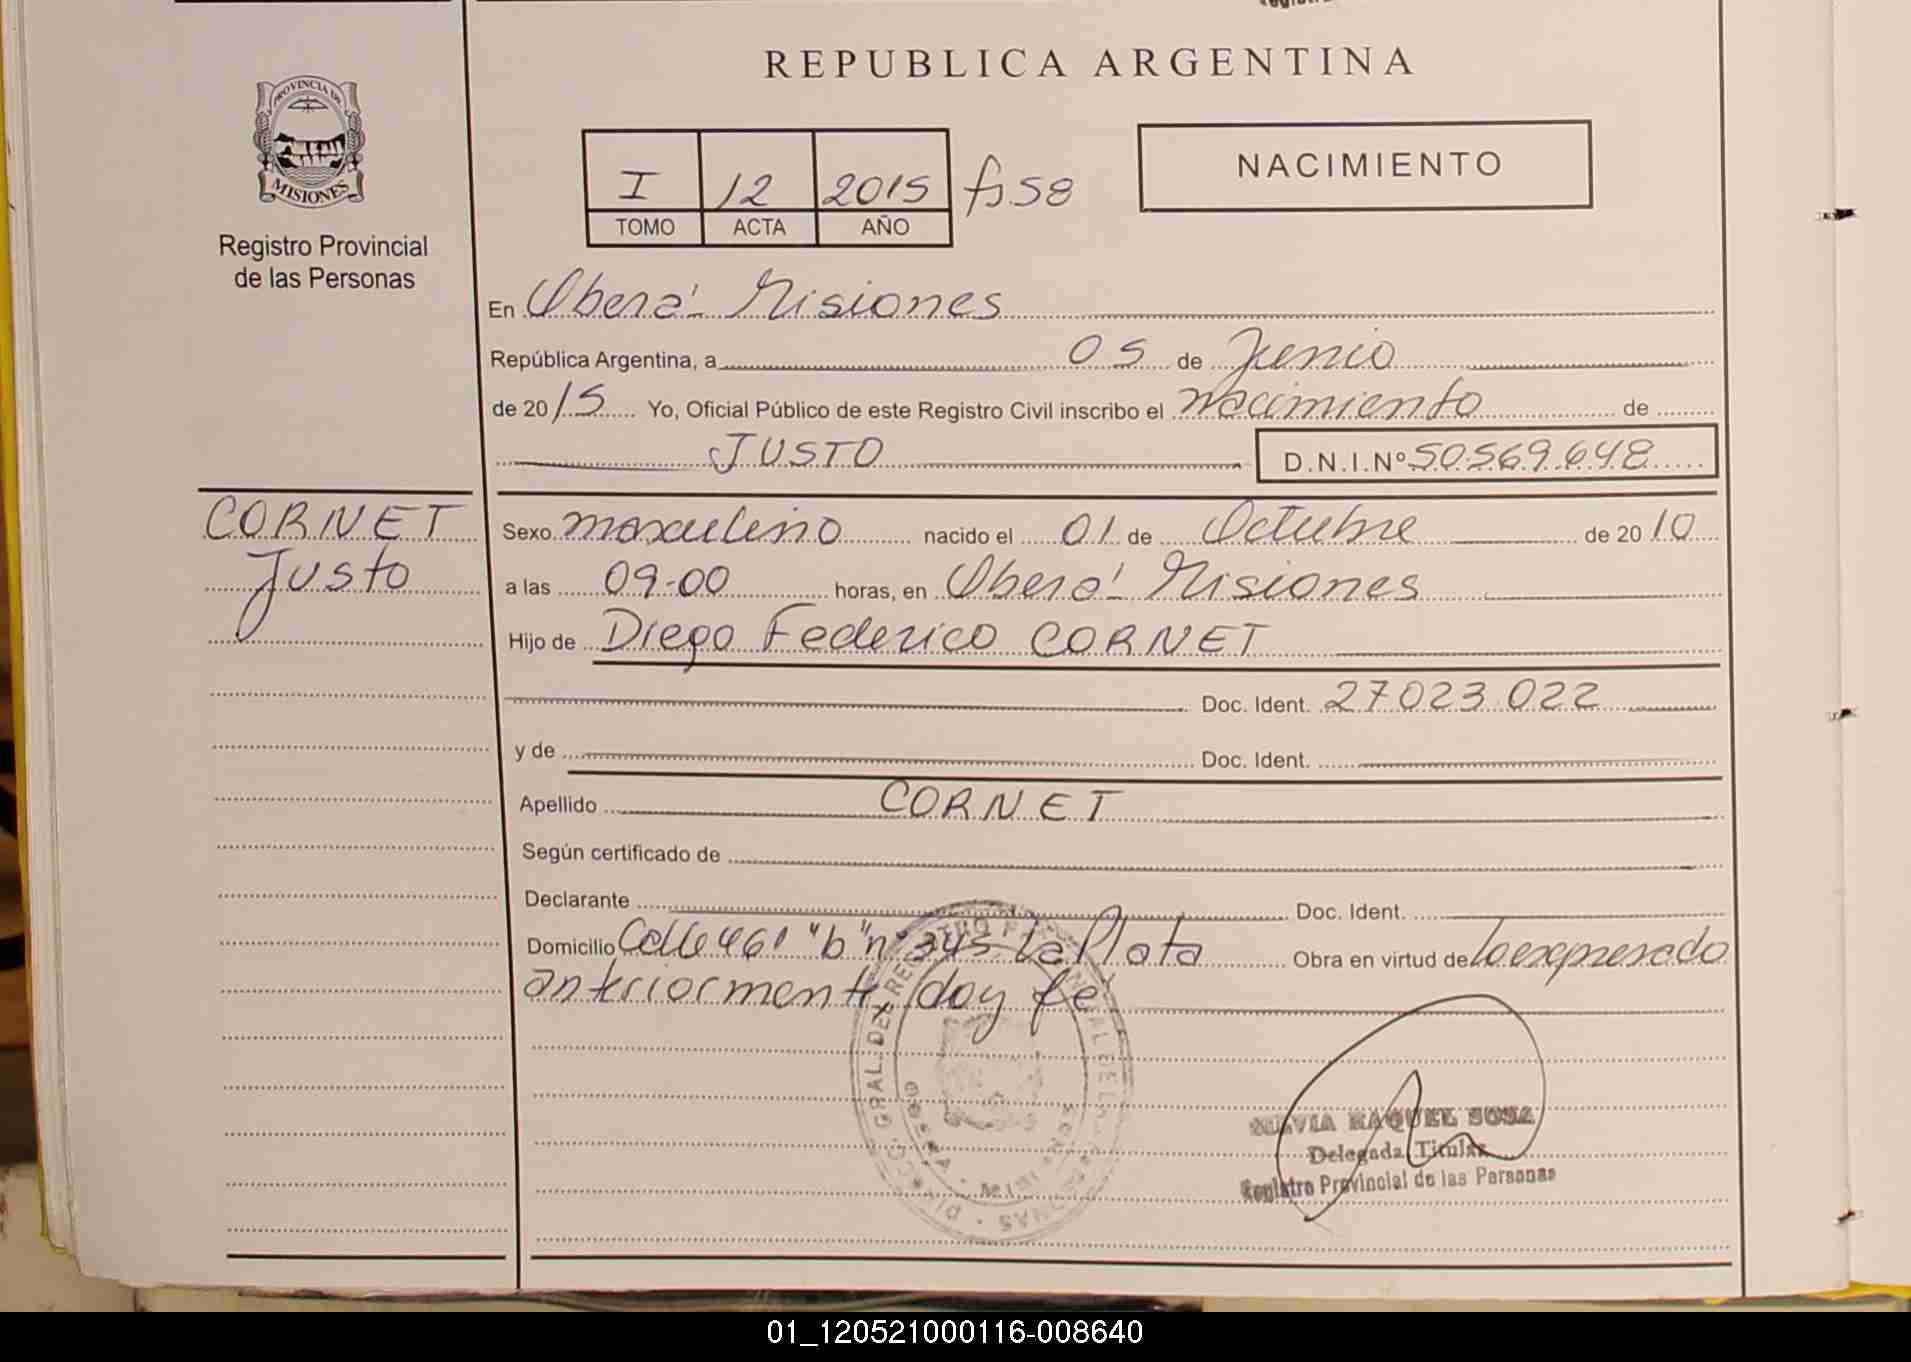 REPUBLICA ARGENTINA
PROVINCIA DE
MISIONES
Registro Provincial
de las Personas
I 12 2015 fs.58
TOMO ACTA AÑO
NACIMIENTO
En Oberá - Misiones
República Argentina, a 05 de Junio
de 2015 Yo, Oficial Público de este Registro Civil inscribo el nacimiento de
JUSTO D.N.I.Nº 50.569.648
CORNET
Justo
Sexo masculino nacido el 01 de Octubre de 2010
a las 09-00 horas, en Oberá - Misiones
Hijo de Diego Federico CORNET
Doc. Ident. 27.023.022
y de Doc. Ident.
Apellido CORNET
Según certificado de
Declarante Doc. Ident.
Domicilio Calle 461 "b" nº 345 La Plata Obra en virtud de lo expresado
anteriormente, doy fe
SILVIA RAQUEL SOSA
Delegada Titular
Registro Provincial de las Personas
01_120521000116-008640